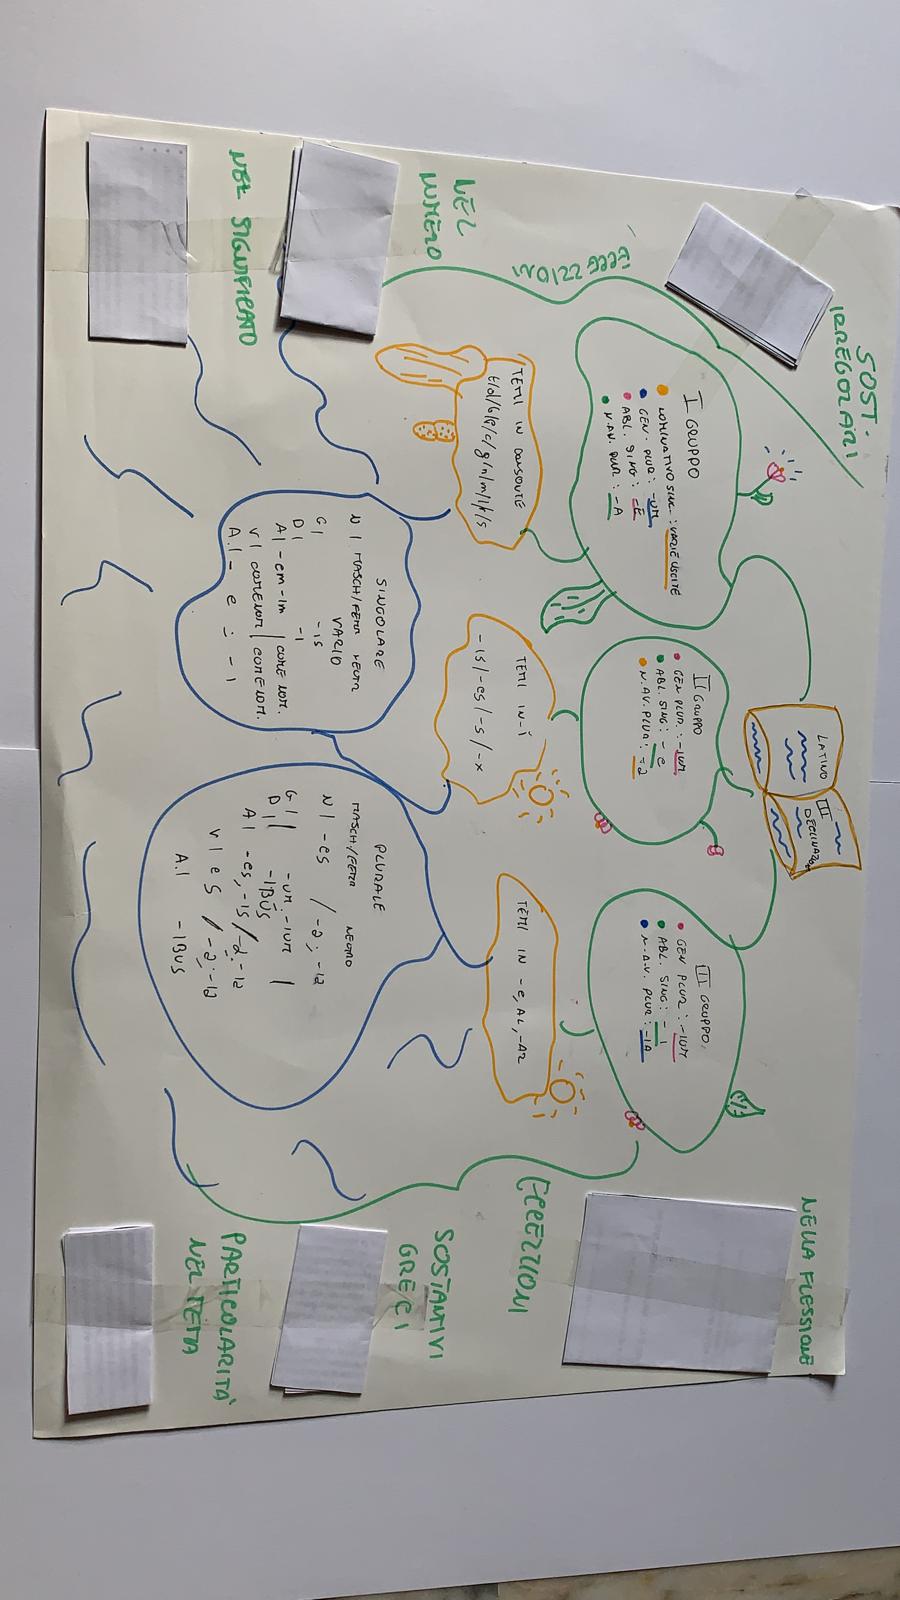 LATINO
III
DECLINAZ.
SOST.
IRREGOLARI
ECCEZZIONI
NEL
NUMERO
NEL SIGNIFICATO
I GRUPPO
NOMINATIVO SING: VARIE USCITE
GEN. PLUR: -UM
ABL. SING: -E
N.AV. PLUR: -A
II GRUPPO
GEN PLUR.: -IUM
ABL. SING: -e
N.AV. PLUR: -a
III GRUPPO
GEN PLUR: -IUM
ABL. SING: -I
N.A.V. PLUR: -IA
TEMI IN CONSONTE
t/d/b/p/c/g/n/m/l/r/s
TEMI IN -ĭ
-is/-es/-s/-x
TEMI IN -e, AL, -AR
SINGOLARE
MASCH/FEMM NEUTR
N| VARIO
G| -is
D| -i
A| -em -im | come nom.
V| come nom | come nom.
A.| - e : - i
PLURALE
MASCH/FEMM NEUTRO
N| -es / -a; -ia
G| -um, -ium
D| -IBUS
A| -es, -is / -a; -ia
V| es / -a; -ia
A.| -IBUS
NELLA FLESSIONE
ECCEZZIONI
SOSTANTIVI
GRECI
PARTICOLARITA'
NEL TEMA